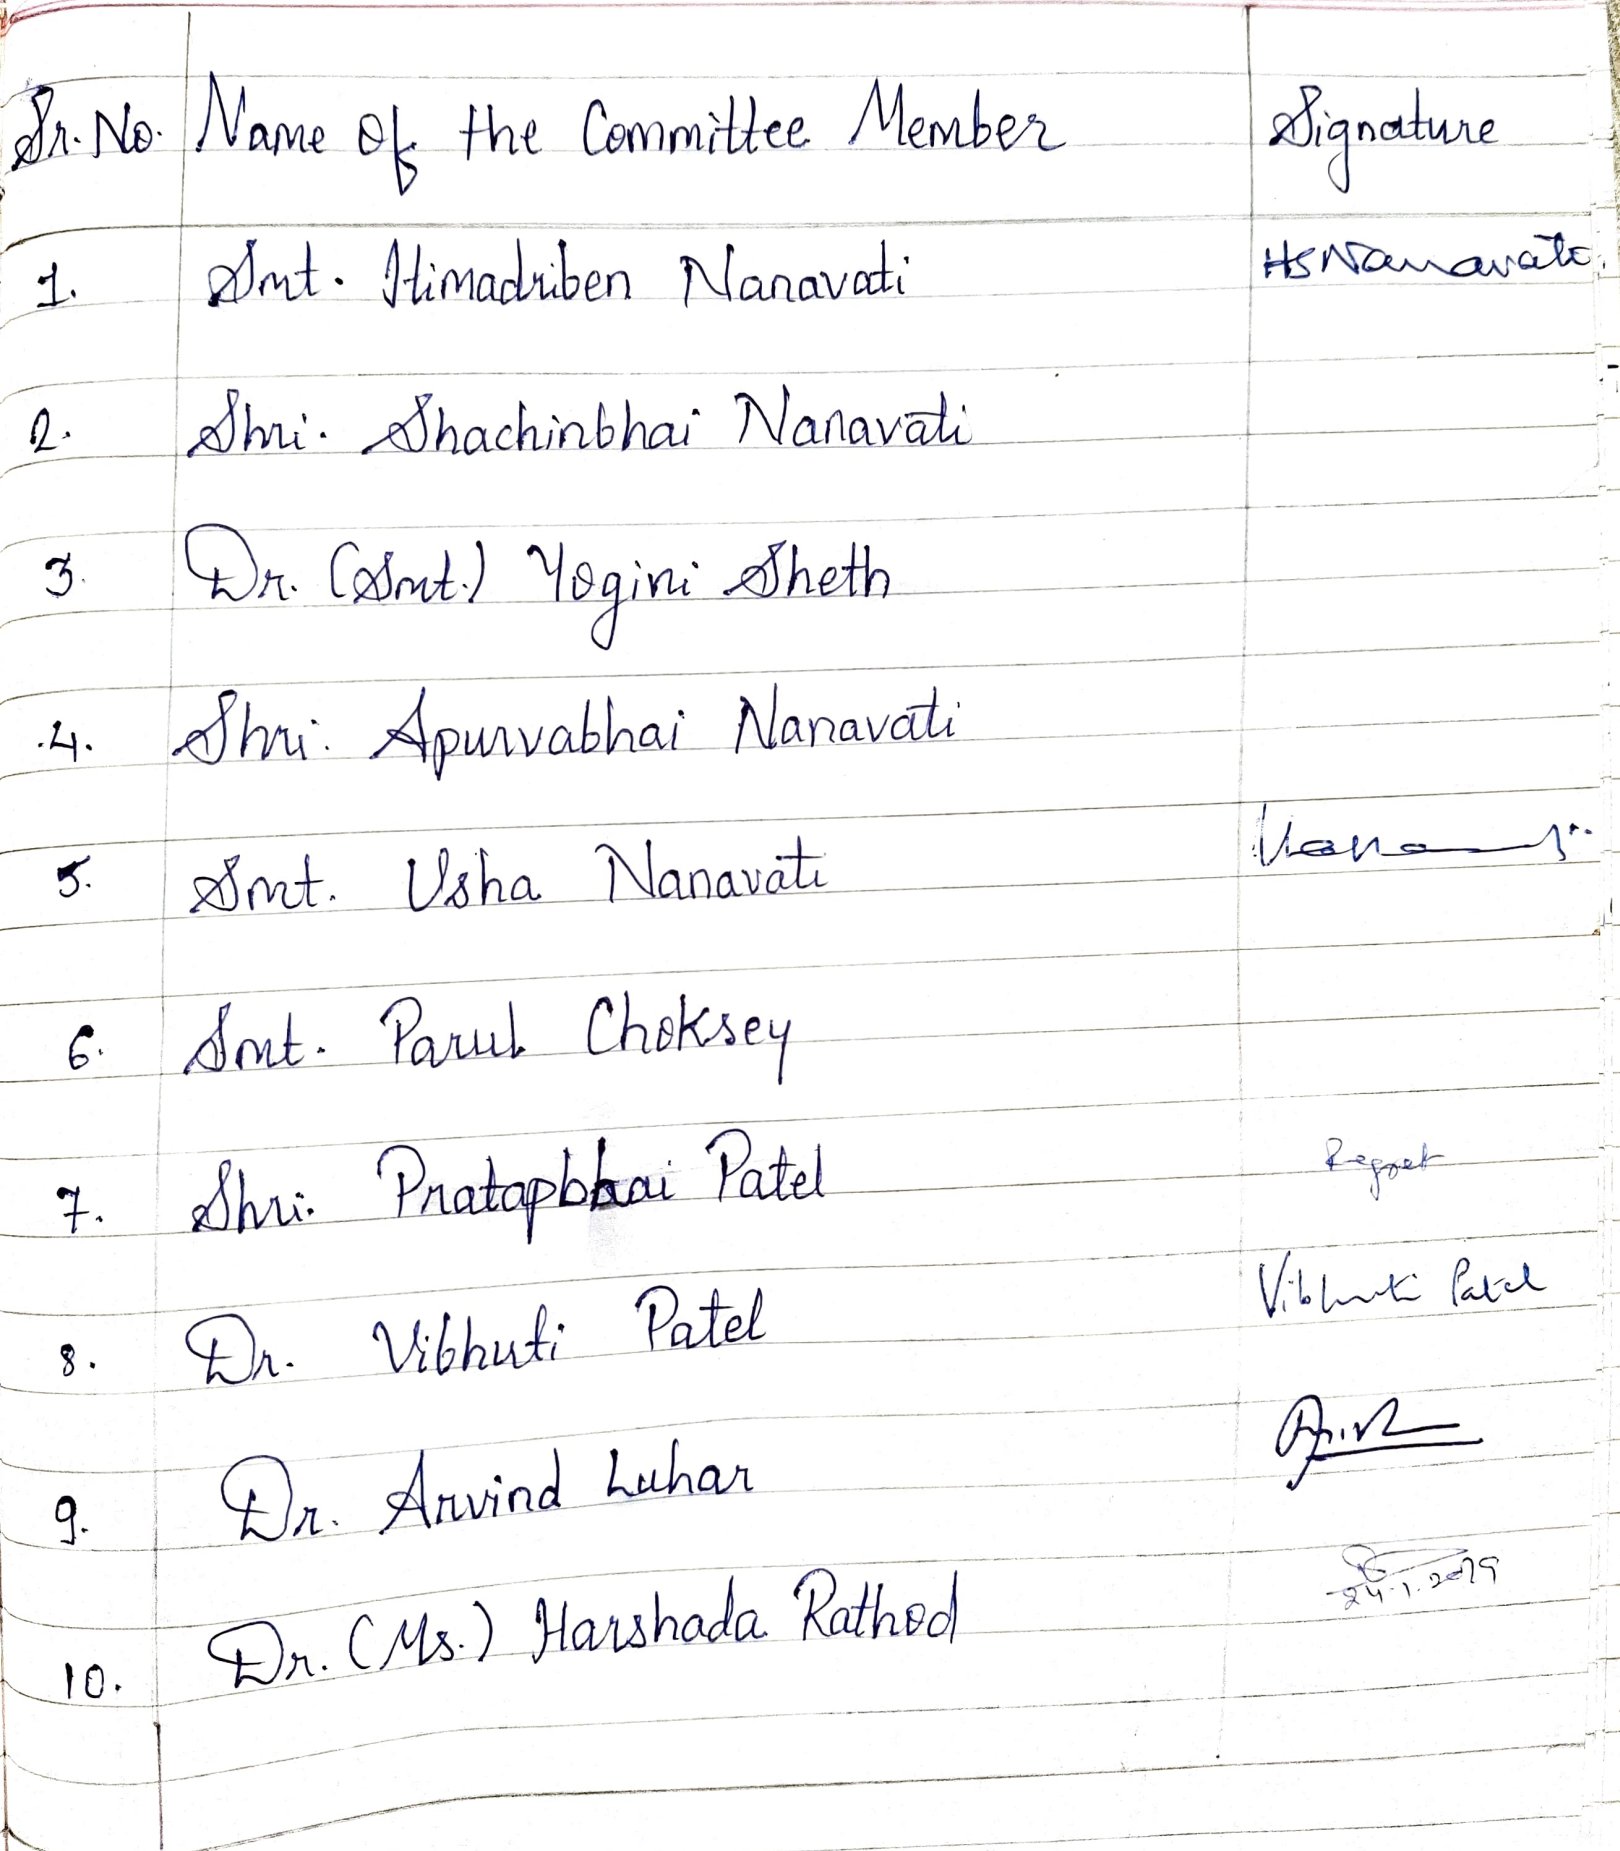 Sr. No. Name of the Committee Member Signature
1. Smt. Himadriben Nanavati HSNanavati
2. Shri. Shachinbhai Nanavati
3. Dr. (Smt.) Yogini Sheth
4. Shri. Apurvabhai Nanavati
5. Smt. Usha Nanavati
6. Smt. Parul Choksey
7. Shri. Pratapbhai Patel Regret
8. Dr. Vibhuti Patel Vibhuti Patel
9. Dr. Arvind Luhar
10. Dr. (Ms.) Harshada Rathod 24.1.2019